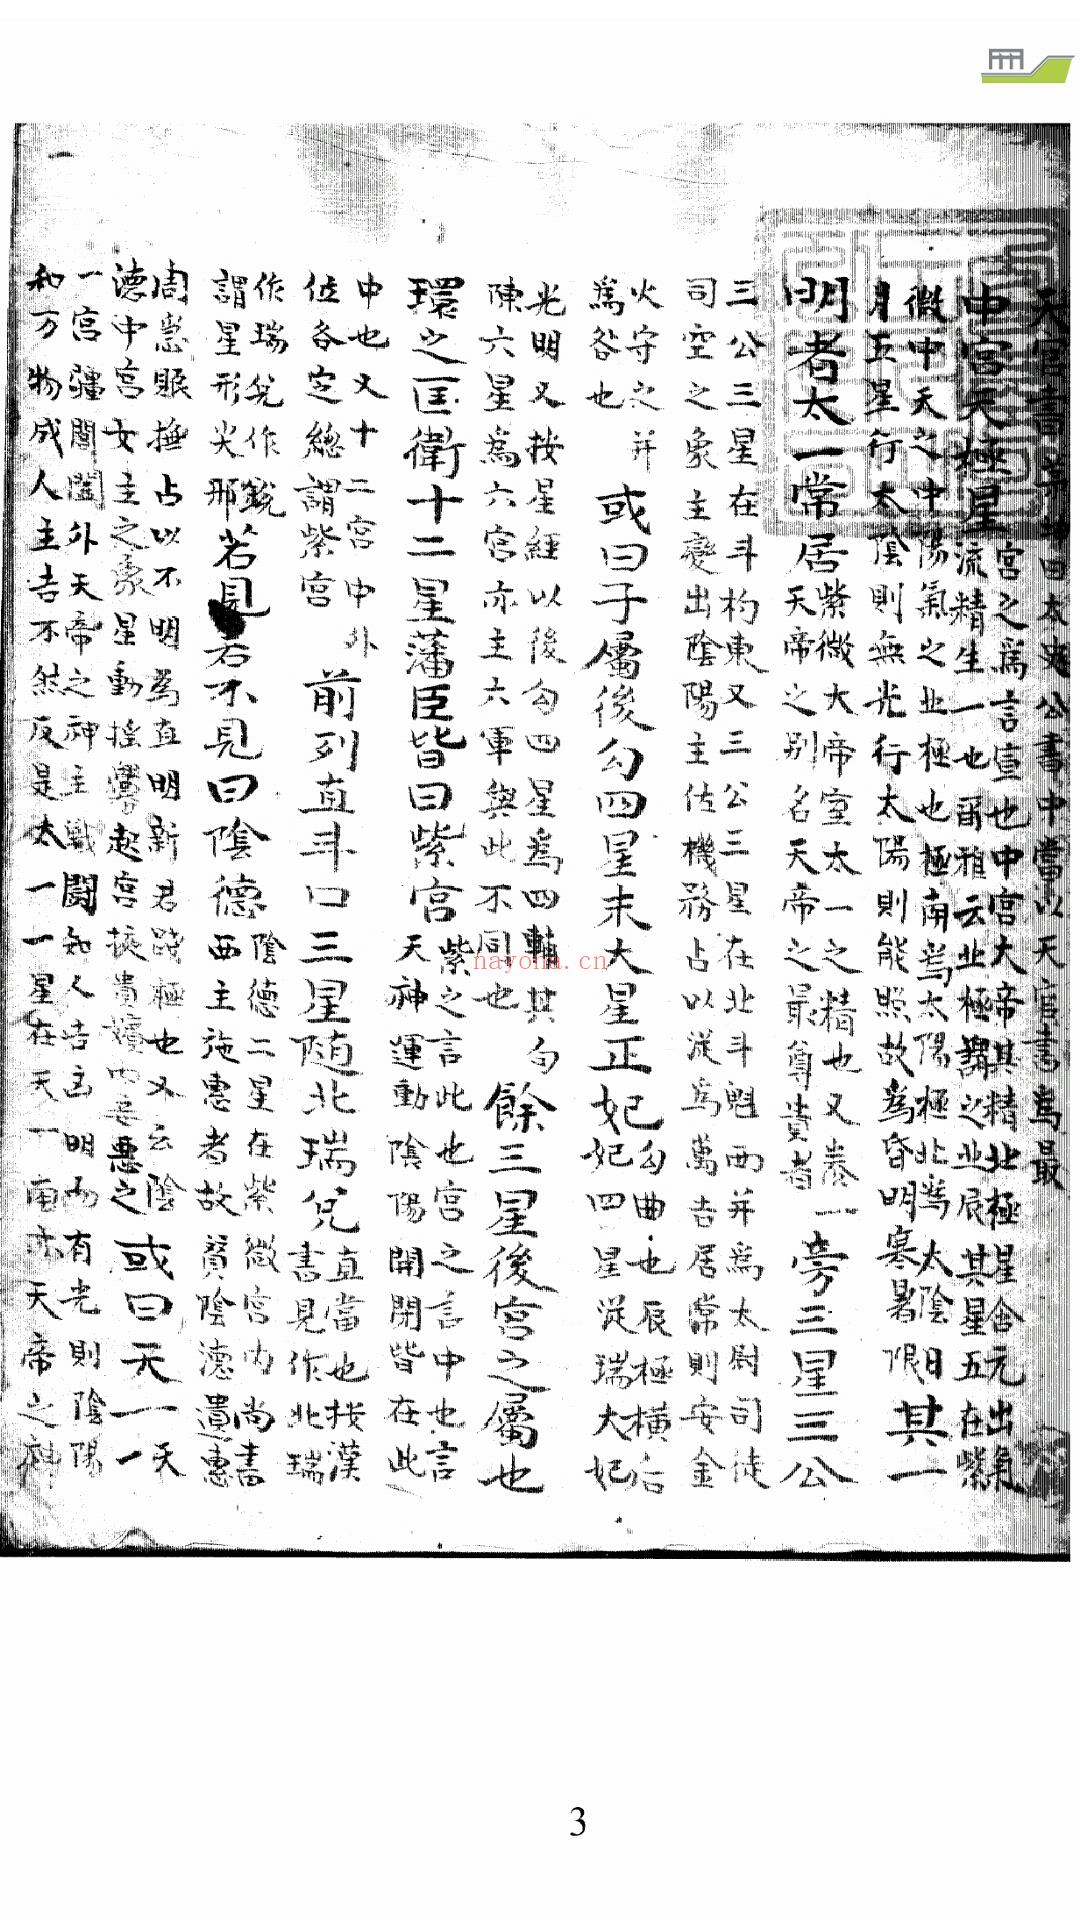 天官書
曰太史公書中當以天官書為最
中宮天極星
宮之為言宣也中宮大帝其精北極星含元出氣
流精生一也爾雅云北極謂之北辰其星五在紫
微中天之中陽氣之北極也極南為太陽極北為太陰日
月五星行太陰則無光行太陽則能照故為昏明寒暑限
其一
明者太一常居
紫微大帝室太一之精也又
天帝之別名天帝之最尊貴者
旁三星三公
三公三星在斗杓東又三公三星在北斗魁西并為太尉司徒
司空之象主變出陰陽主佐機務占以從為萬吉居常則安金
火守之并
為咎也
或曰子屬後勾四星末大星正妃
勾曲也辰極橫后
妃四星從瑞大妃
光明又按星經以後勾四星為四輔其勾
陳六星為六宮亦主六軍與此不同也
餘三星後宮之屬也
環之匡衛十二星藩臣皆曰紫宮
紫之言此也宮之言中也言
天神運動陰陽開閉皆在此
中也又十二宮中外
位各定總謂紫宮
前列直斗口三星隨北瑞兌
直當也按漢
書見作北瑞
作瑞兌作銳
謂星形尖邪
若見若不見曰陰德
陰德二星在紫微宮內尚書
西主施惠者故貧陰德遺惠
周急賑撫占以不明為直明新君踐極也又云陰
德中宮女主之象星動搖釁起宮掖貴嬪內妾惡之
或曰天一
天一
一宮疆閶闔外天帝之神主戰鬪知人吉凶明而有光則陰陽
和万物成人主吉不然反是太一一星在天一南亦天帝之神
nayona.cn
3